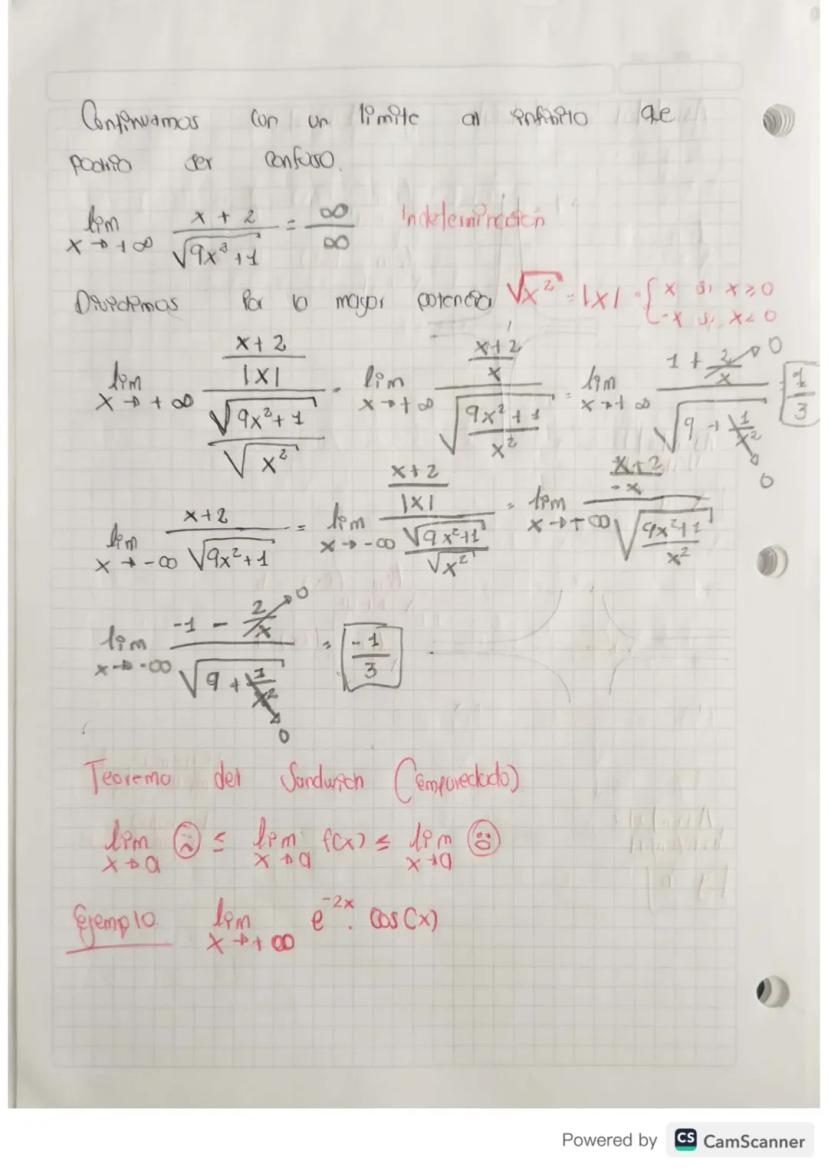 Continuamos con un limite al infinito que
podria ser confuso.
lim x→+∞ (x + 2)/√(9x³+1) = ∞/∞ Indeterminación
Dividimos por la mayor potencia √x² = |x| = { x si x≥0
-x si x<0
lim x→+∞ ((x+2)/|x|)/(√(9x²+1)/√x²) = lim x→+∞ ((x+2)/x)/√((9x²+1)/x²) = lim x→+∞ (1 + 2/x → 0)/√(9 + 1/x² → 0) = 1/3
lim x→-∞ (x+2)/√(9x²+1) = lim x→-∞ ((x+2)/|x|)/(√(9x²+1)/√x²) = lim x→+∞ ((x+2)/-x)/√((9x²+1)/x²)
lim x→-∞ (-1 - 2/x → 0)/√(9 + 1/x² → 0) = -1/3
Teorema del Sandwich (emparedado)
lim x→a ☹ ≤ lim x→a f(x) ≤ lim x→a ☹
Ejemplo lim x→+∞ e^-2x · cos(x)
Powered by CS CamScanner